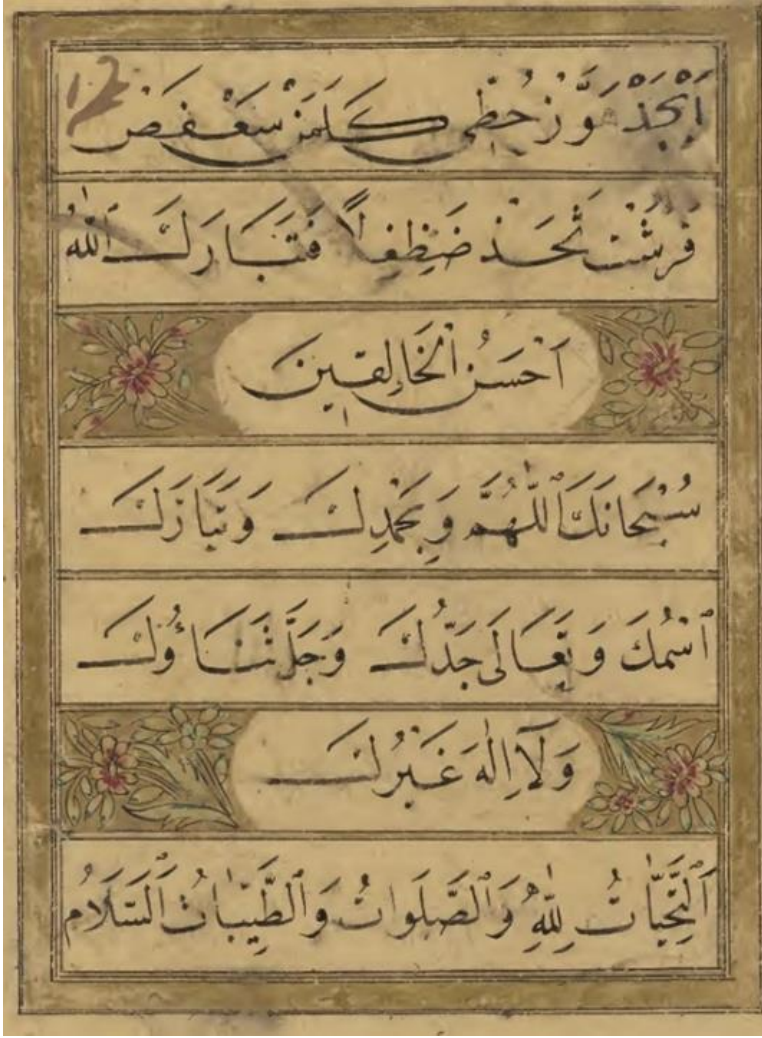 12
اَبْجَدْ هَوَّزْ حُطِّى كَلَمَنْ سَعْفَصْ
قَرَشَتْ ثَخَذْ ضَظِغِلاً فَتَبَارَكَ ٱللّٰهُ
اَحْسَنُ الْخَالِقِينَ
سُبْحَانَكَ ٱللّٰهُمَّ وَبِحَمْدِكَ وَتَبَارَكَ
ٱسْمُكَ وَتَعَالَى جَدُّكَ وَجَلَّ ثَنَاؤُكَ
وَلَآ اِلٰهَ غَيْرُكَ
اَلتَّحِيَّاتُ لِلّٰهِ وَٱلصَّلَوَاتُ وَٱلطَّيِّبَاتُ اَلسَّلَامُ